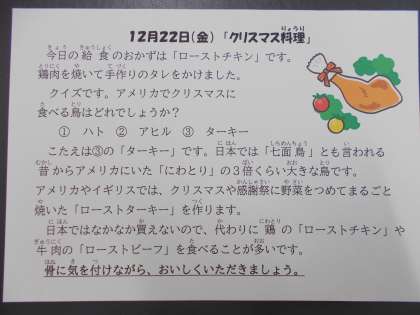 12月22日(金)「クリスマス料理」
今日の給食のおかずは「ローストチキン」です。
鶏肉を焼いて手作りのタレをかけました。
クイズです。アメリカでクリスマスに
食べる鳥はどれでしょうか？
① ハト ② アヒル ③ ターキー
こたえは③の「ターキー」です。日本では「七面鳥」とも言われる
昔からアメリカにいた「にわとり」の３倍くらい大きな鳥です。
アメリカやイギリスでは、クリスマスや感謝祭に野菜をつめてまるごと
焼いた「ローストターキー」を作ります。
日本ではなかなか買えないので、代わりに鶏の「ローストチキン」や
牛肉の「ローストビーフ」を食べることが多いです。
骨に気を付けながら、おいしくいただきましょう。